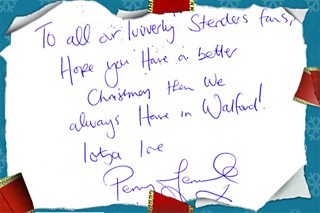 To all our luvverly Stenders fans,
Hope you Have a better
Christmas then We
always Have in Walford!
Lotsa love
Penny